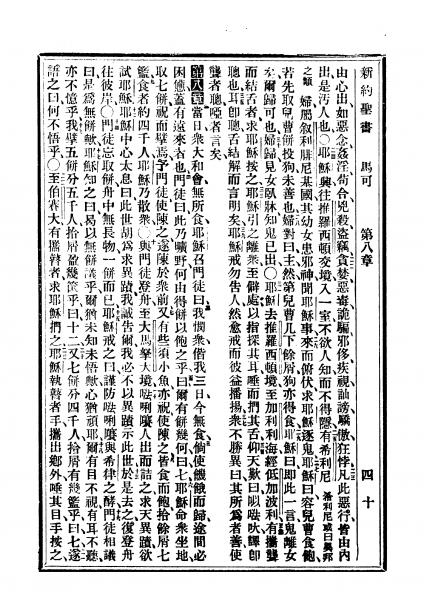 新約聖書 馬可 第八章 四十
由心出如惡念姦淫苟合兇殺盜竊貪婪惡毒詭騙邪侈疾視訕謗驕傲狂悖凡此惡行皆由內
出是汚人也〇耶穌興往推羅西頓交境入一室不欲人知而不得隱有希利尼希利尼或曰異邦
之類婦屬叙利腓尼基國其幼女患邪神聞耶穌事來而俯伏求耶穌逐鬼耶穌曰容兒曹食飽
若先取兒曹餅投狗未善也婦對曰主然第兒曹几下餘屑狗亦得食耶穌曰卽此一言鬼離女
矣爾歸可也婦歸見女臥牀知鬼已出〇耶穌去推羅西頓境至加利利海經低加波利有攜聾
而結舌者求耶穌按之耶穌引之離衆至僻處以指探其耳唾而捫其舌仰天歎曰以呔譯卽
聰也耳卽聰舌結解而言明矣耶穌戒勿告人然愈戒而彼益播揚衆不勝異曰其所爲者善使
聾者聰啞者言矣
第八章當日衆大和會無所食耶穌召門徒曰我憫衆偕我三日今無食倘使饑餓而歸途間必
困憊蓋有遠來者也門徒曰此乃曠野何由得餅以飽之乎曰爾有餅幾何曰七耶穌命衆坐地
取七餅祝而擘焉予門徒使陳之遂陳於衆前又有些須小魚亦祝使陳之皆食而飽拾餘屑七
籃食者約四千人耶穌乃散衆〇與門徒登舟至大馬拏大境唎人出而詰之求天異蹟欲
試耶穌耶穌中心太息曰此世胡爲求異蹟我誠告爾我必不以異蹟示此世於是去之復登舟
往彼岸〇門徒忘取餅舟中無長物一餅而已耶穌戒之曰謹防唎與希律之酵門徒相議
曰是爲無餅歟耶穌知之曰曷以無餅議乎爾猶未知未悟歟心猶頑耶爾有目不視有耳不聽
亦不憶乎我擘五餅分五千人拾屑盈幾筐乎曰十二又七餅分四千人拾屑有幾籃乎曰七遂
語之曰何不悟乎〇至伯賽大有攜瞽者求耶穌捫之耶穌執瞽者手攜出鄉外唾其目手按之